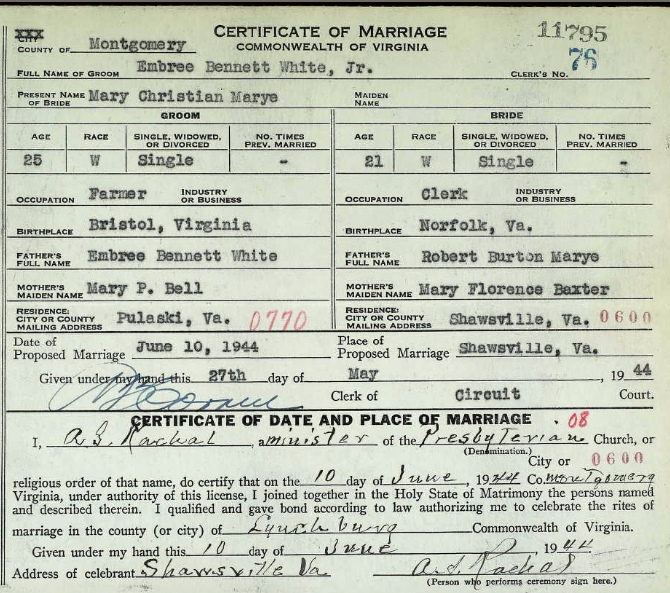 XXX
CITY
CERTIFICATE OF MARRIAGE
11795
COUNTY OF Montgomery
COMMONWEALTH OF VIRGINIA
76
FULL NAME OF GROOM Embree Bennett White, Jr.
CLERK'S NO.
PRESENT NAME OF BRIDE Mary Christian Marye MAIDEN NAME
GROOM BRIDE
AGE RACE SINGLE, WIDOWED, OR DIVORCED NO. TIMES PREV. MARRIED AGE RACE SINGLE, WIDOWED, OR DIVORCED NO. TIMES PREV. MARRIED
25 W Single - 21 W Single -
OCCUPATION Farmer INDUSTRY OR BUSINESS OCCUPATION Clerk INDUSTRY OR BUSINESS
BIRTHPLACE Bristol, Virginia BIRTHPLACE Norfolk, Va.
FATHER'S FULL NAME Embree Bennett White FATHER'S FULL NAME Robert Burton Marye
MOTHER'S MAIDEN NAME Mary P. Bell MOTHER'S MAIDEN NAME Mary Florence Baxter
RESIDENCE: CITY OR COUNTY MAILING ADDRESS Pulaski, Va. 0770 RESIDENCE: CITY OR COUNTY MAILING ADDRESS Shawsville, Va. 0600
Date of Proposed Marriage June 10, 1944 Place of Proposed Marriage Shawsville, Va.
Given under my hand this 27th day of May, 1944
Clerk of Circuit Court.
CERTIFICATE OF DATE AND PLACE OF MARRIAGE . 08
I, A.S. Rachal, a minister of the Presbyterian Church, or
(Denomination.)
City or 0600
religious order of that name, do certify that on the 10 day of June, 1944 Co. Montgomery
Virginia, under authority of this license, I joined together in the Holy State of Matrimony the persons named
and described therein. I qualified and gave bond according to law authorizing me to celebrate the rites of
marriage in the county (or city) of Lynchburg Commonwealth of Virginia.
Given under my hand this 10 day of June, 1944.
Address of celebrant Shawsville Va A.S. Rachal
(Person who performs ceremony sign here.)